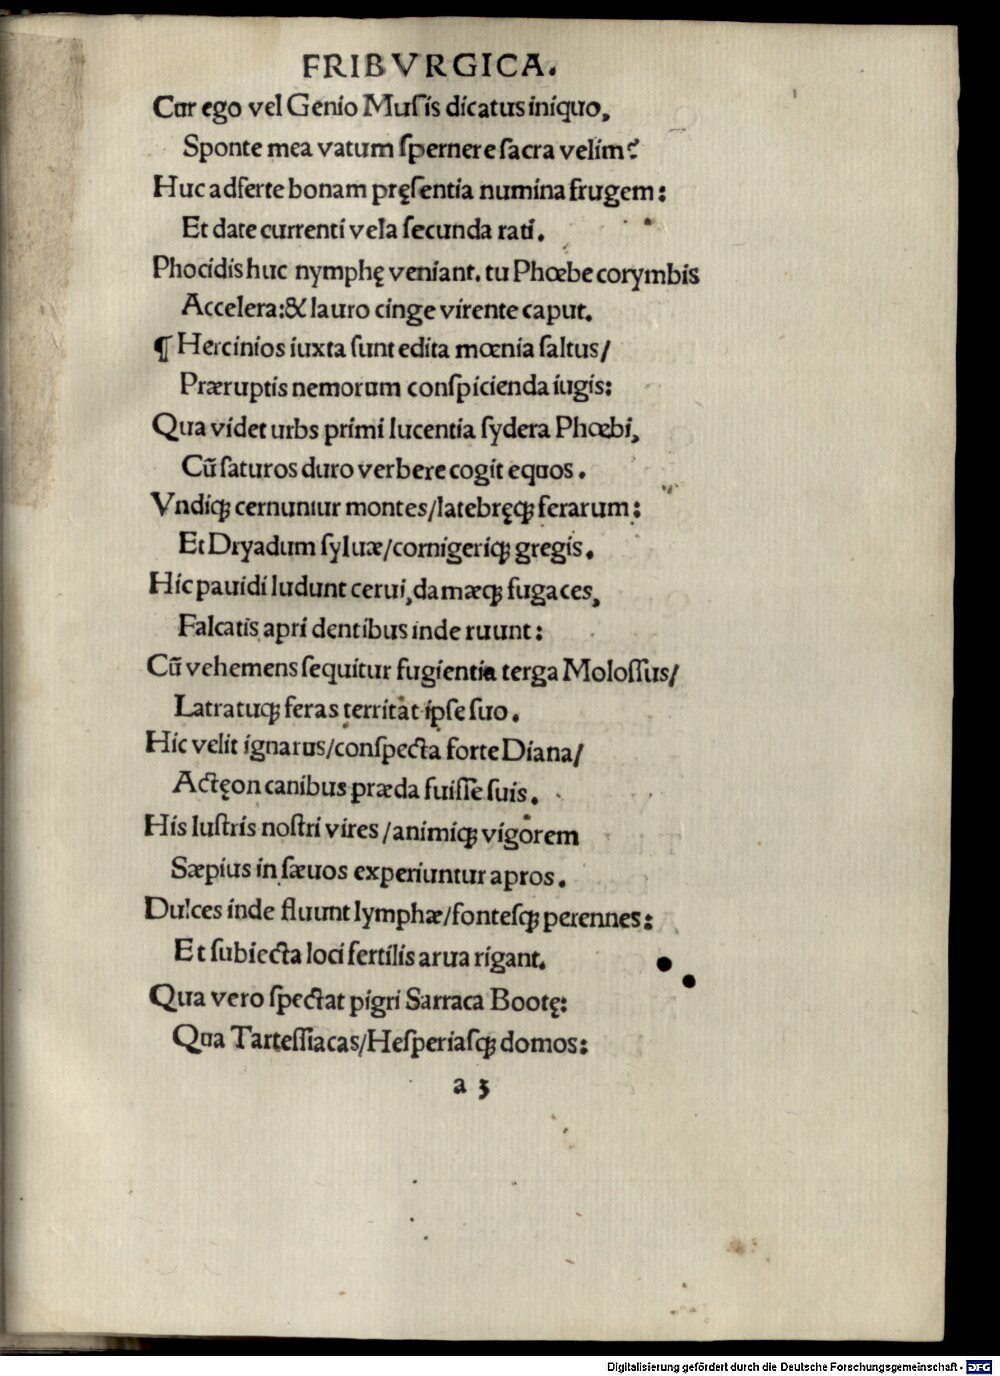 FRIBVRGICA.
Cur ego vel Genio Muſis dicatus iniquo,
Sponte mea vatum ſpernere ſacra velim?
Huc adferte bonam pręſentia numina frugem:
Et date currenti vela ſecunda rati.
Phocidis huc nymphę veniant. tu Phœbe corymbis
Accelera:& lauro cinge virente caput.
¶ Hercinios iuxta ſunt edita mœnia ſaltus/
Præruptis nemorum conſpicienda iugis:
Qua videt urbs primi lucentia ſydera Phœbi,
Cũ ſaturos duro verbere cogit equos.
Vndiqꝫ cernuntur montes/latebręqꝫ ferarum:
Et Dryadum ſyluæ/cornigeriqꝫ gregis.
Hic pauidi ludunt cerui,damæqꝫ fugaces,
Falcatis apri dentibus inde ruunt:
Cũ vehemens ſequitur fugientia terga Moloſſus/
Latratuqꝫ feras territat ipſe ſuo.
Hic velit ignarus/conſpecta forte Diana/
Actęon canibus præda fuiſſe ſuis.
His luſtris noſtri vires/animiqꝫ vigorem
Sæpius in ſæuos experiuntur apros.
Dulces inde fluunt lymphæ/fonteſqꝫ perennes:
Et ſubiecta loci fertilis arua rigant.
Qua vero ſpectat pigri Sarraca Bootę:
Qua Tarteſſiacas/Heſperiaſqꝫ domos:
a 3
Digitalisierung gefördert durch die Deutsche Forschungsgemeinschaft - DFG